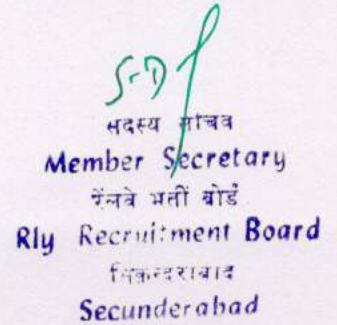 S-D
सदस्य सचिव
Member Secretary
रेलवे भर्ती बोर्ड
Rly Recruitment Board
सिकन्दराबाद
Secunderabad